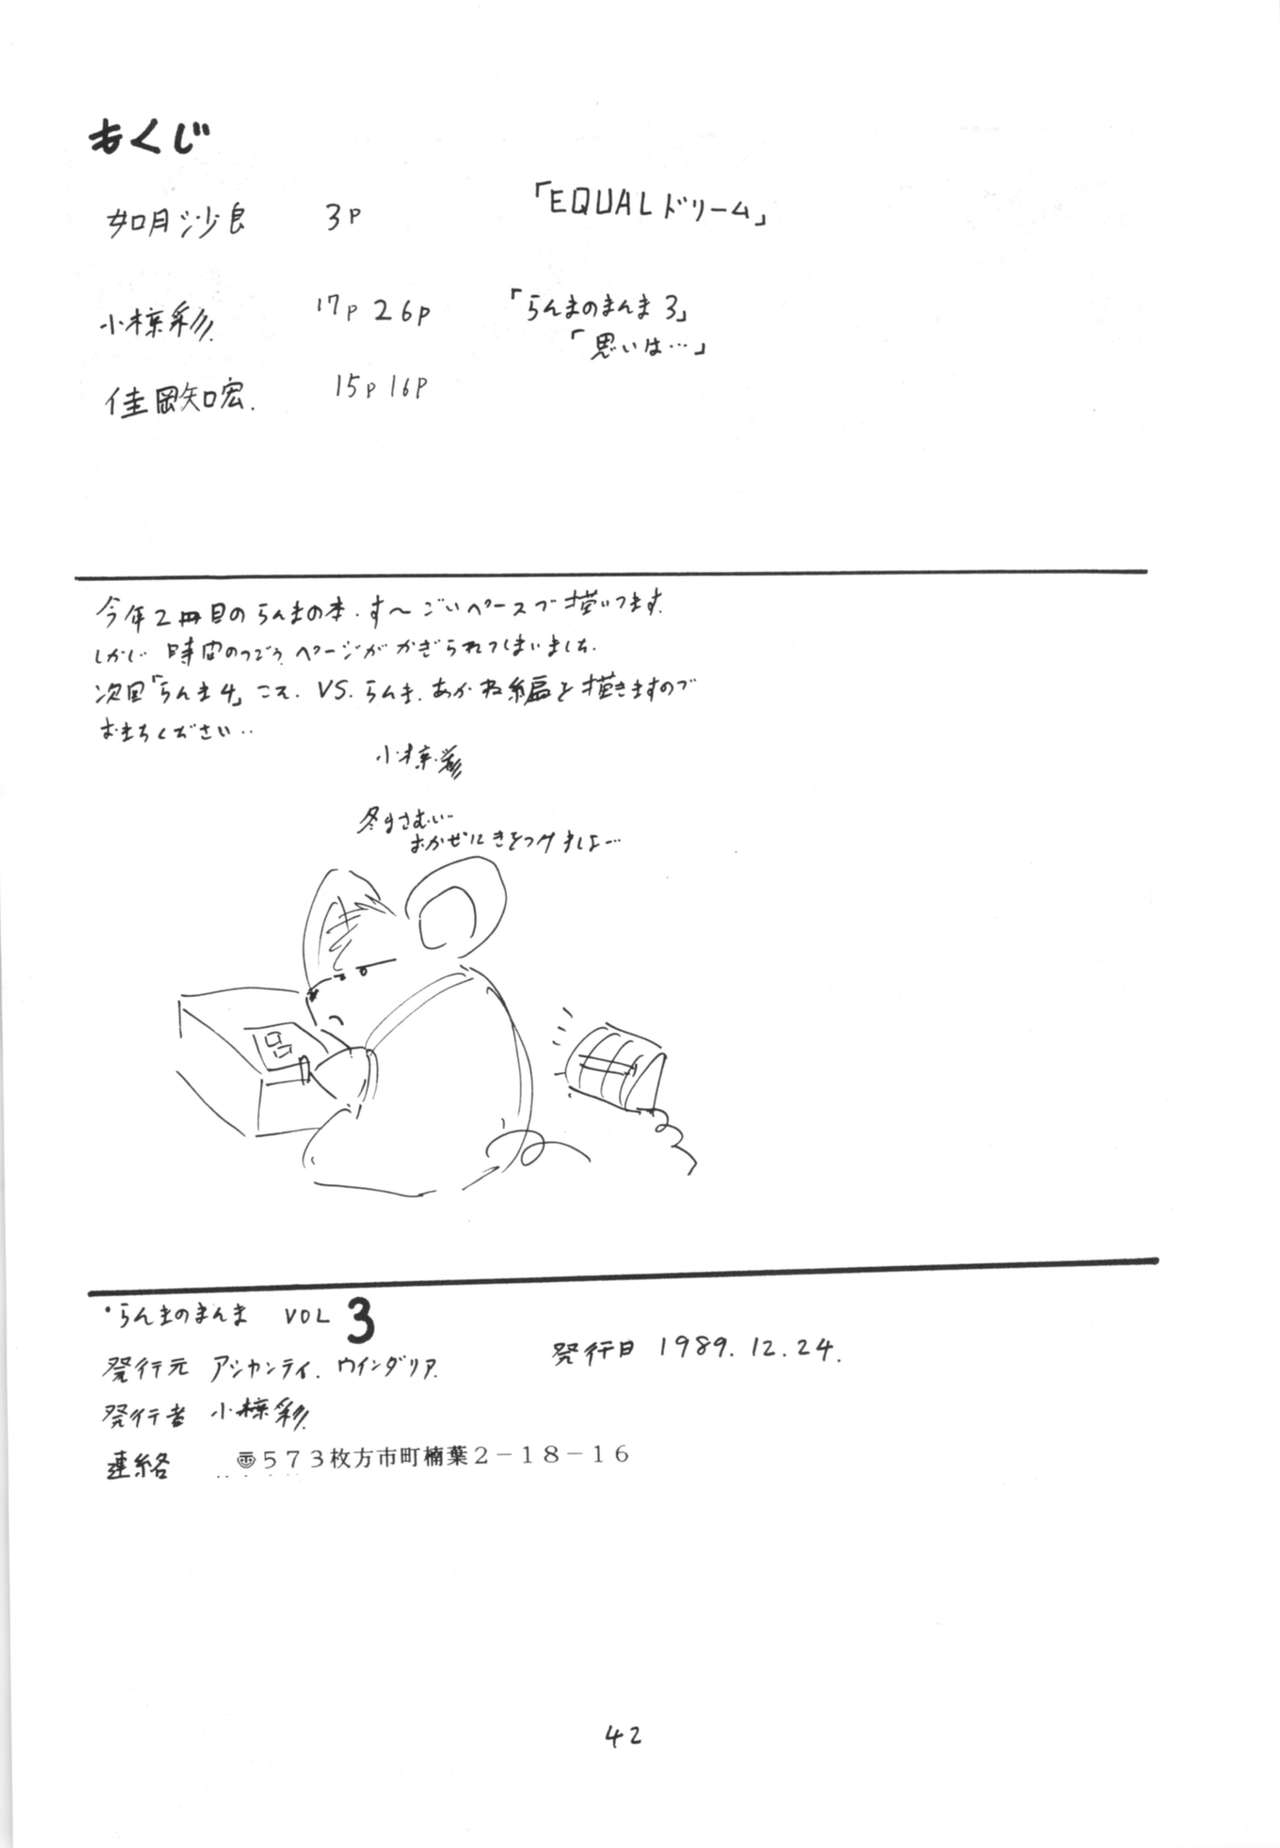 もくじ
如月沙良 3P 「EQUALドリーム」
小椋彩 17P 26P 「らんまのまんま3」
「思いは…」
佳岡知宏. 15P 16P
今年2冊目のらんまの本.す〜ごいペースで描いてます.
しかし 時間のつごう、ページがかぎられてしまいました.
次回「らんま4」こそ. VS.らんま.あかね編を描きますので
おまちください‥
小椋彩
冬はさむい…
おかぜにきをつけましょ…
・らんまのまんま VOL 3
発行元 アシャンティ.ウインダリア. 発行日 1989.12.24.
発行者 小椋彩
連絡 〠573枚方市町楠葉2−18−16
42